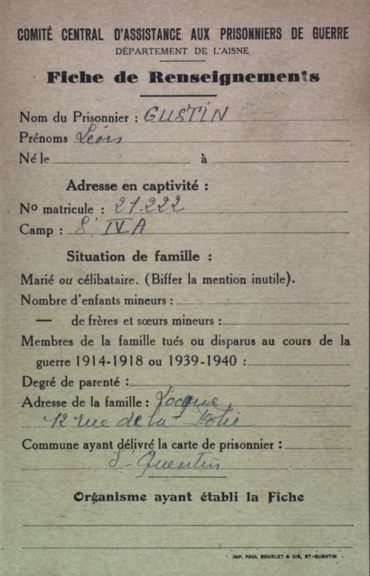 COMITÉ CENTRAL D'ASSISTANCE AUX PRISONNIERS DE GUERRE
DÉPARTEMENT DE L'AISNE
Fiche de Renseignements
Nom du Prisonnier : GUSTIN
Prénoms Léon
Né le à
Adresse en captivité :
No matricule : 21.222
Camp : S' IV A
Situation de famille :
Marié ou célibataire. (Biffer la mention inutile).
Nombre d'enfants mineurs :
— de frères et sœurs mineurs :
Membres de la famille tués ou disparus au cours de la
guerre 1914-1918 ou 1939-1940 :
Degré de parenté :
Adresse de la famille :
12 rue de la Folie
Commune ayant délivré la carte de prisonnier :
S-Quentin
Organisme ayant établi la Fiche
IMP. PAUL BOURLET & CIE, ST-QUENTIN